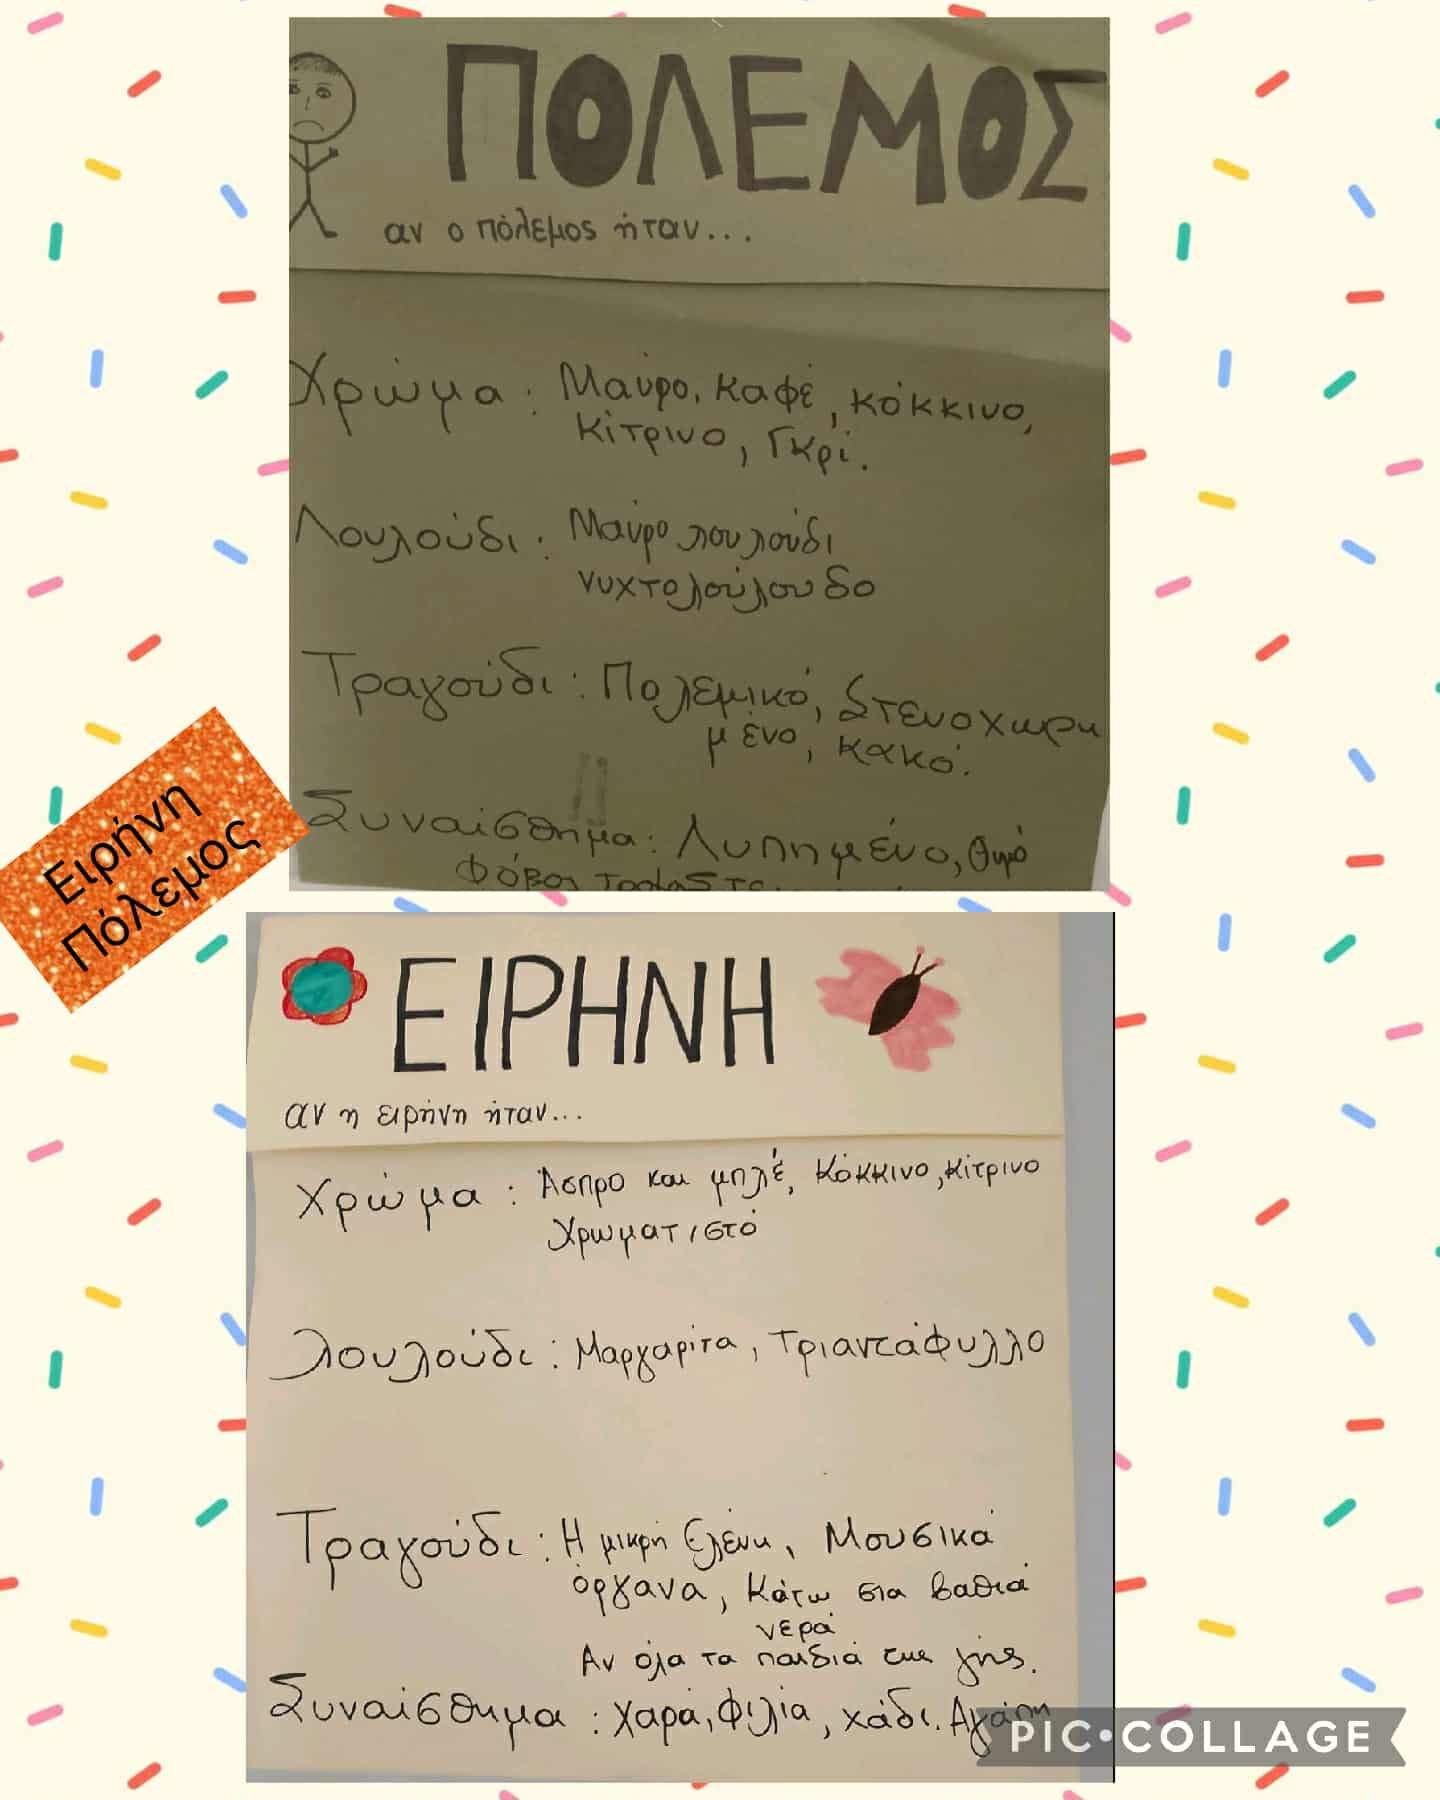 ΠΟΛΕΜΟΣ
αν ο πόλεμος ήταν...
Χρώμα: Μαύρο, καφέ, κόκκινο,
κίτρινο, γκρί.
Λουλούδι: Μαύρο λουλούδι
νυχτολούλουδο
Τραγούδι: Πολεμικό, Στενοχωρη
μένο, κακό.
Συναίσθημα: Λυπημένο, θυμό
Φόβος
Ειρήνη
Πόλεμος
ΕΙΡΗΝΗ
αν η ειρήνη ήταν...
Χρώμα: Άσπρο και μπλέ, κόκκινο, κίτρινο
Χρωματιστό
Λουλούδι: Μαργαρίτα, Τριαντάφυλλο
Τραγούδι: Η μικρή Ελένη, Μουσικά
όργανα, Κάτω στα βαθιά
νερά
Αν όλα τα παιδιά της γής.
Συναίσθημα: Χαρά, Φιλία, χάδι. Αγάπη
PIC•COLLAGE